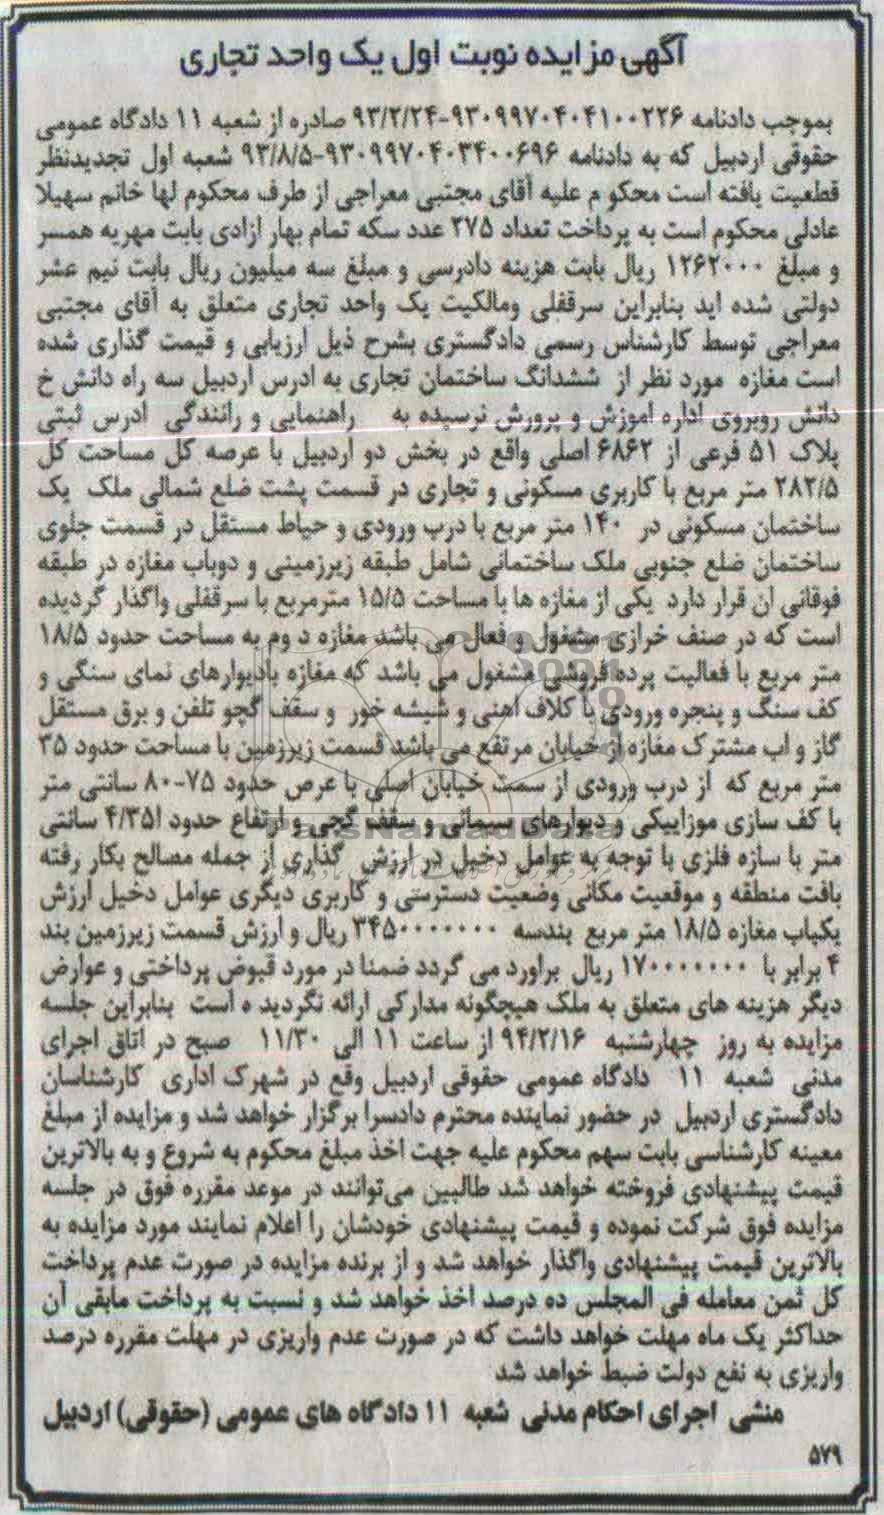 آگهی مزایده نوبت اول یک واحد تجاری
بموجب دادنامه ۹۳۰۹۹۷۰۴۰۴۱۰۰۲۲۶-۹۳/۲/۲۴ صادره از شعبه ۱۱ دادگاه عمومی
حقوقی اردبیل که به دادنامه ۹۳۰۹۹۷۰۴۰۳۴۰۰۶۹۶-۹۳/۸/۵ شعبه اول تجدیدنظر
قطعیت یافته است محکو م علیه آقای مجتبی معراجی از طرف محکوم لها خانم سهیلا
عادلی محکوم است به پرداخت تعداد ۲۷۵ عدد سکه تمام بهار ازادی بابت مهریه همسر
و مبلغ ۱۲۶۲۰۰۰ ریال بابت هزینه دادرسی و مبلغ سه میلیون ریال بابت نیم عشر
دولتی شده اید بنابراین سرقفلی ومالکیت یک واحد تجاری متعلق به آقای مجتبی
معراجی توسط کارشناس رسمی دادگستری بشرح ذیل ارزیابی و قیمت گذاری شده
است مغازه مورد نظر از ششدانگ ساختمان تجاری به ادرس اردبیل سه راه دانش خ
دانش روبروی اداره اموزش و پرورش نرسیده به راهنمایی و رانندگی ادرس ثبتی
پلاک ۵۱ فرعی از ۶۸۶۲ اصلی واقع در بخش دو اردبیل با عرصه کل مساحت کل
۲۸۲/۵ متر مربع با کاربری مسکونی و تجاری در قسمت پشت ضلع شمالی ملک یک
ساختمان مسکونی در ۱۴۰ متر مربع با درب ورودی و حیاط مستقل در قسمت جلوی
ساختمان ضلع جنوبی ملک ساختمانی شامل طبقه زیرزمینی و دوباب مغازه در طبقه
فوقانی ان قرار دارد یکی از مغازه ها با مساحت ۱۵/۵ مترمربع با سرقفلی واگذار گردیده
است که در صنف خرازی مشغول و فعال می باشد مغازه د وم به مساحت حدود ۱۸/۵
متر مربع با فعالیت پرده فروشی مشغول می باشد که مغازه بادیوارهای نمای سنگی و
کف سنگ و پنجره ورودی با کلاف اهنی و شیشه خور و سقف گچو تلفن و برق مستقل
گاز و اب مشترک مغازه از خیابان مرتفع می باشد قسمت زیرزمین با مساحت حدود ۳۵
متر مربع که از درب ورودی از سمت خیابان اصلی با عرض حدود ۷۵-۸۰ سانتی متر
با کف سازی موزاییکی و دیوارهای سیمانی و سقف گچی و ارتفاع حدود ا۴/۳۵ سانتی
متر با سازه فلزی با توجه به عوامل دخیل در ارزش گذاری از جمله مصالح بکار رفته
بافت منطقه و موقعیت مکانی وضعیت دسترسی و کاربری دیگری عوامل دخیل ارزش
یکباب مغازه ۱۸/۵ متر مربع بندسه ۳۴۵۰۰۰۰۰۰۰ ریال و ارزش قسمت زیرزمین بند
۴ برابر با ۱۷۰۰۰۰۰۰۰ ریال براورد می گردد ضمنا در مورد قبوض پرداختی و عوارض
دیگر هزینه های متعلق به ملک هیچگونه مدارکی ارائه نگردید ه است بنابراین جلسه
مزایده به روز چهارشنبه ۹۴/۲/۱۶ از ساعت ۱۱ الی ۱۱/۳۰ صبح در اتاق اجرای
مدنی شعبه ۱۱ دادگاه عمومی حقوقی اردبیل وقع در شهرک اداری کارشناسان
دادگستری اردبیل در حضور نماینده محترم دادسرا برگزار خواهد شد و مزایده از مبلغ
معینه کارشناسی بابت سهم محکوم علیه جهت اخذ مبلغ محکوم به شروع و به بالاترین
قیمت پیشنهادی فروخته خواهد شد طالبین می‌توانند در موعد مقرره فوق در جلسه
مزایده فوق شرکت نموده و قیمت پیشنهادی خودشان را اعلام نمایند مورد مزایده به
بالاترین قیمت پیشنهادی واگذار خواهد شد و از برنده مزایده در صورت عدم پرداخت
کل ثمن معامله فی المجلس ده درصد اخذ خواهد شد و نسبت به پرداخت مابقی آن
حداکثر یک ماه مهلت خواهد داشت که در صورت عدم واریزی در مهلت مقرره درصد
واریزی به نفع دولت ضبط خواهد شد
منشی اجرای احکام مدنی شعبه ۱۱ دادگاه های عمومی (حقوقی) اردبیل
۵۷۹
ParsNamadData